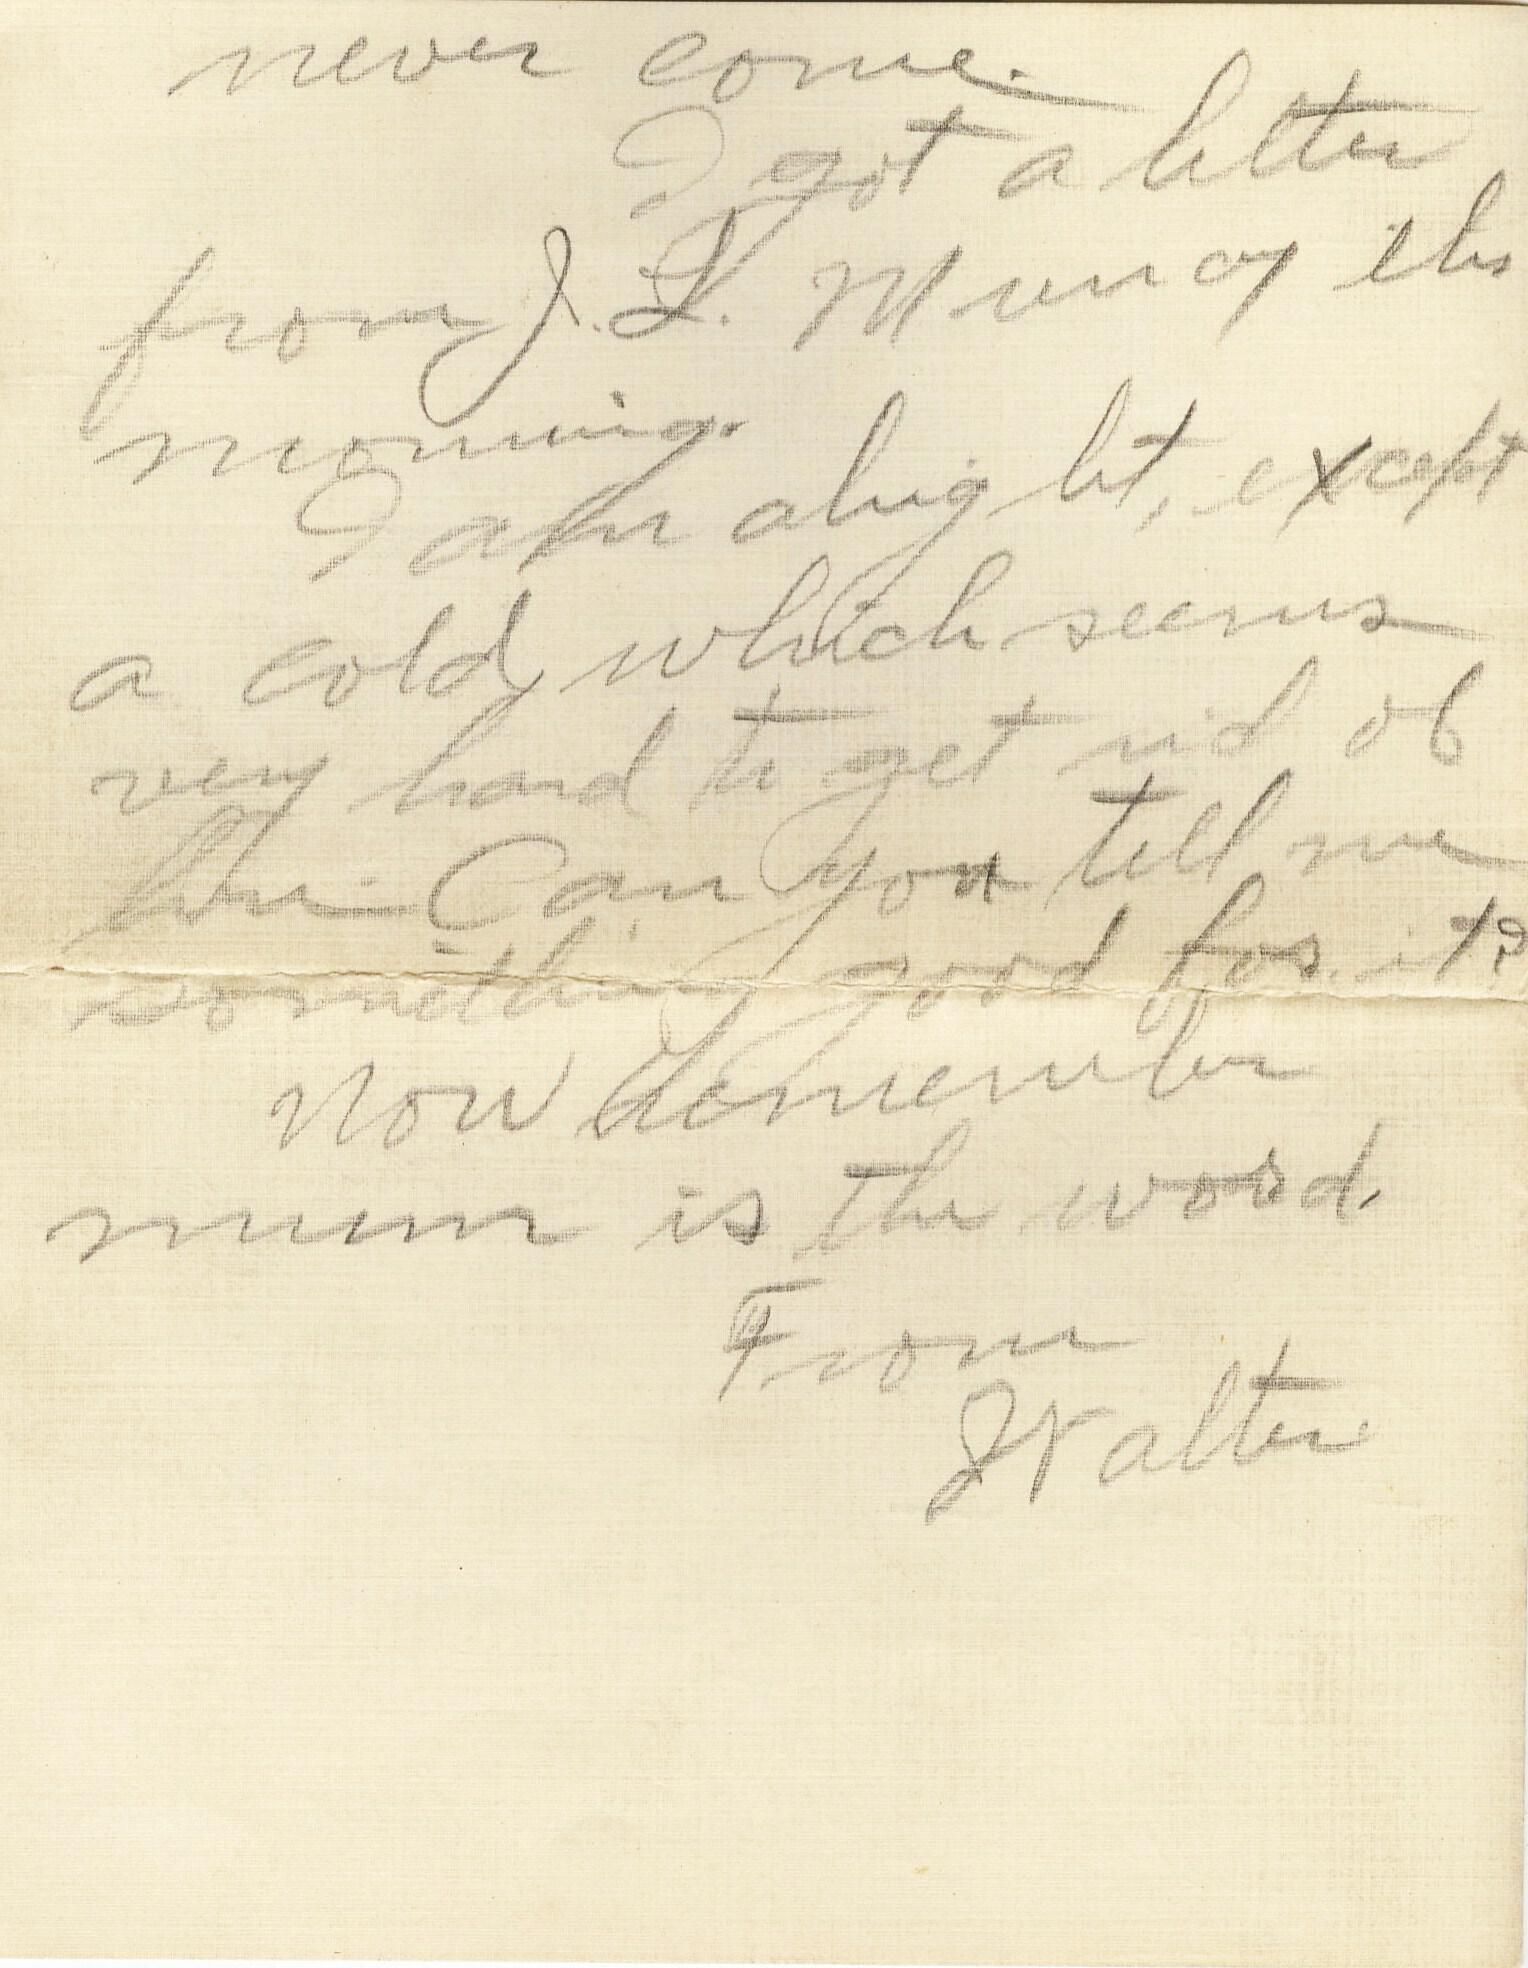 never come.
I got a letter
from J. L. Muncy this
morning.
I am alright, except
a cold, which seems
very hard to get rid of
here. Can you tell me
something good for it?
Now remember
mum is the word.
From
Walter